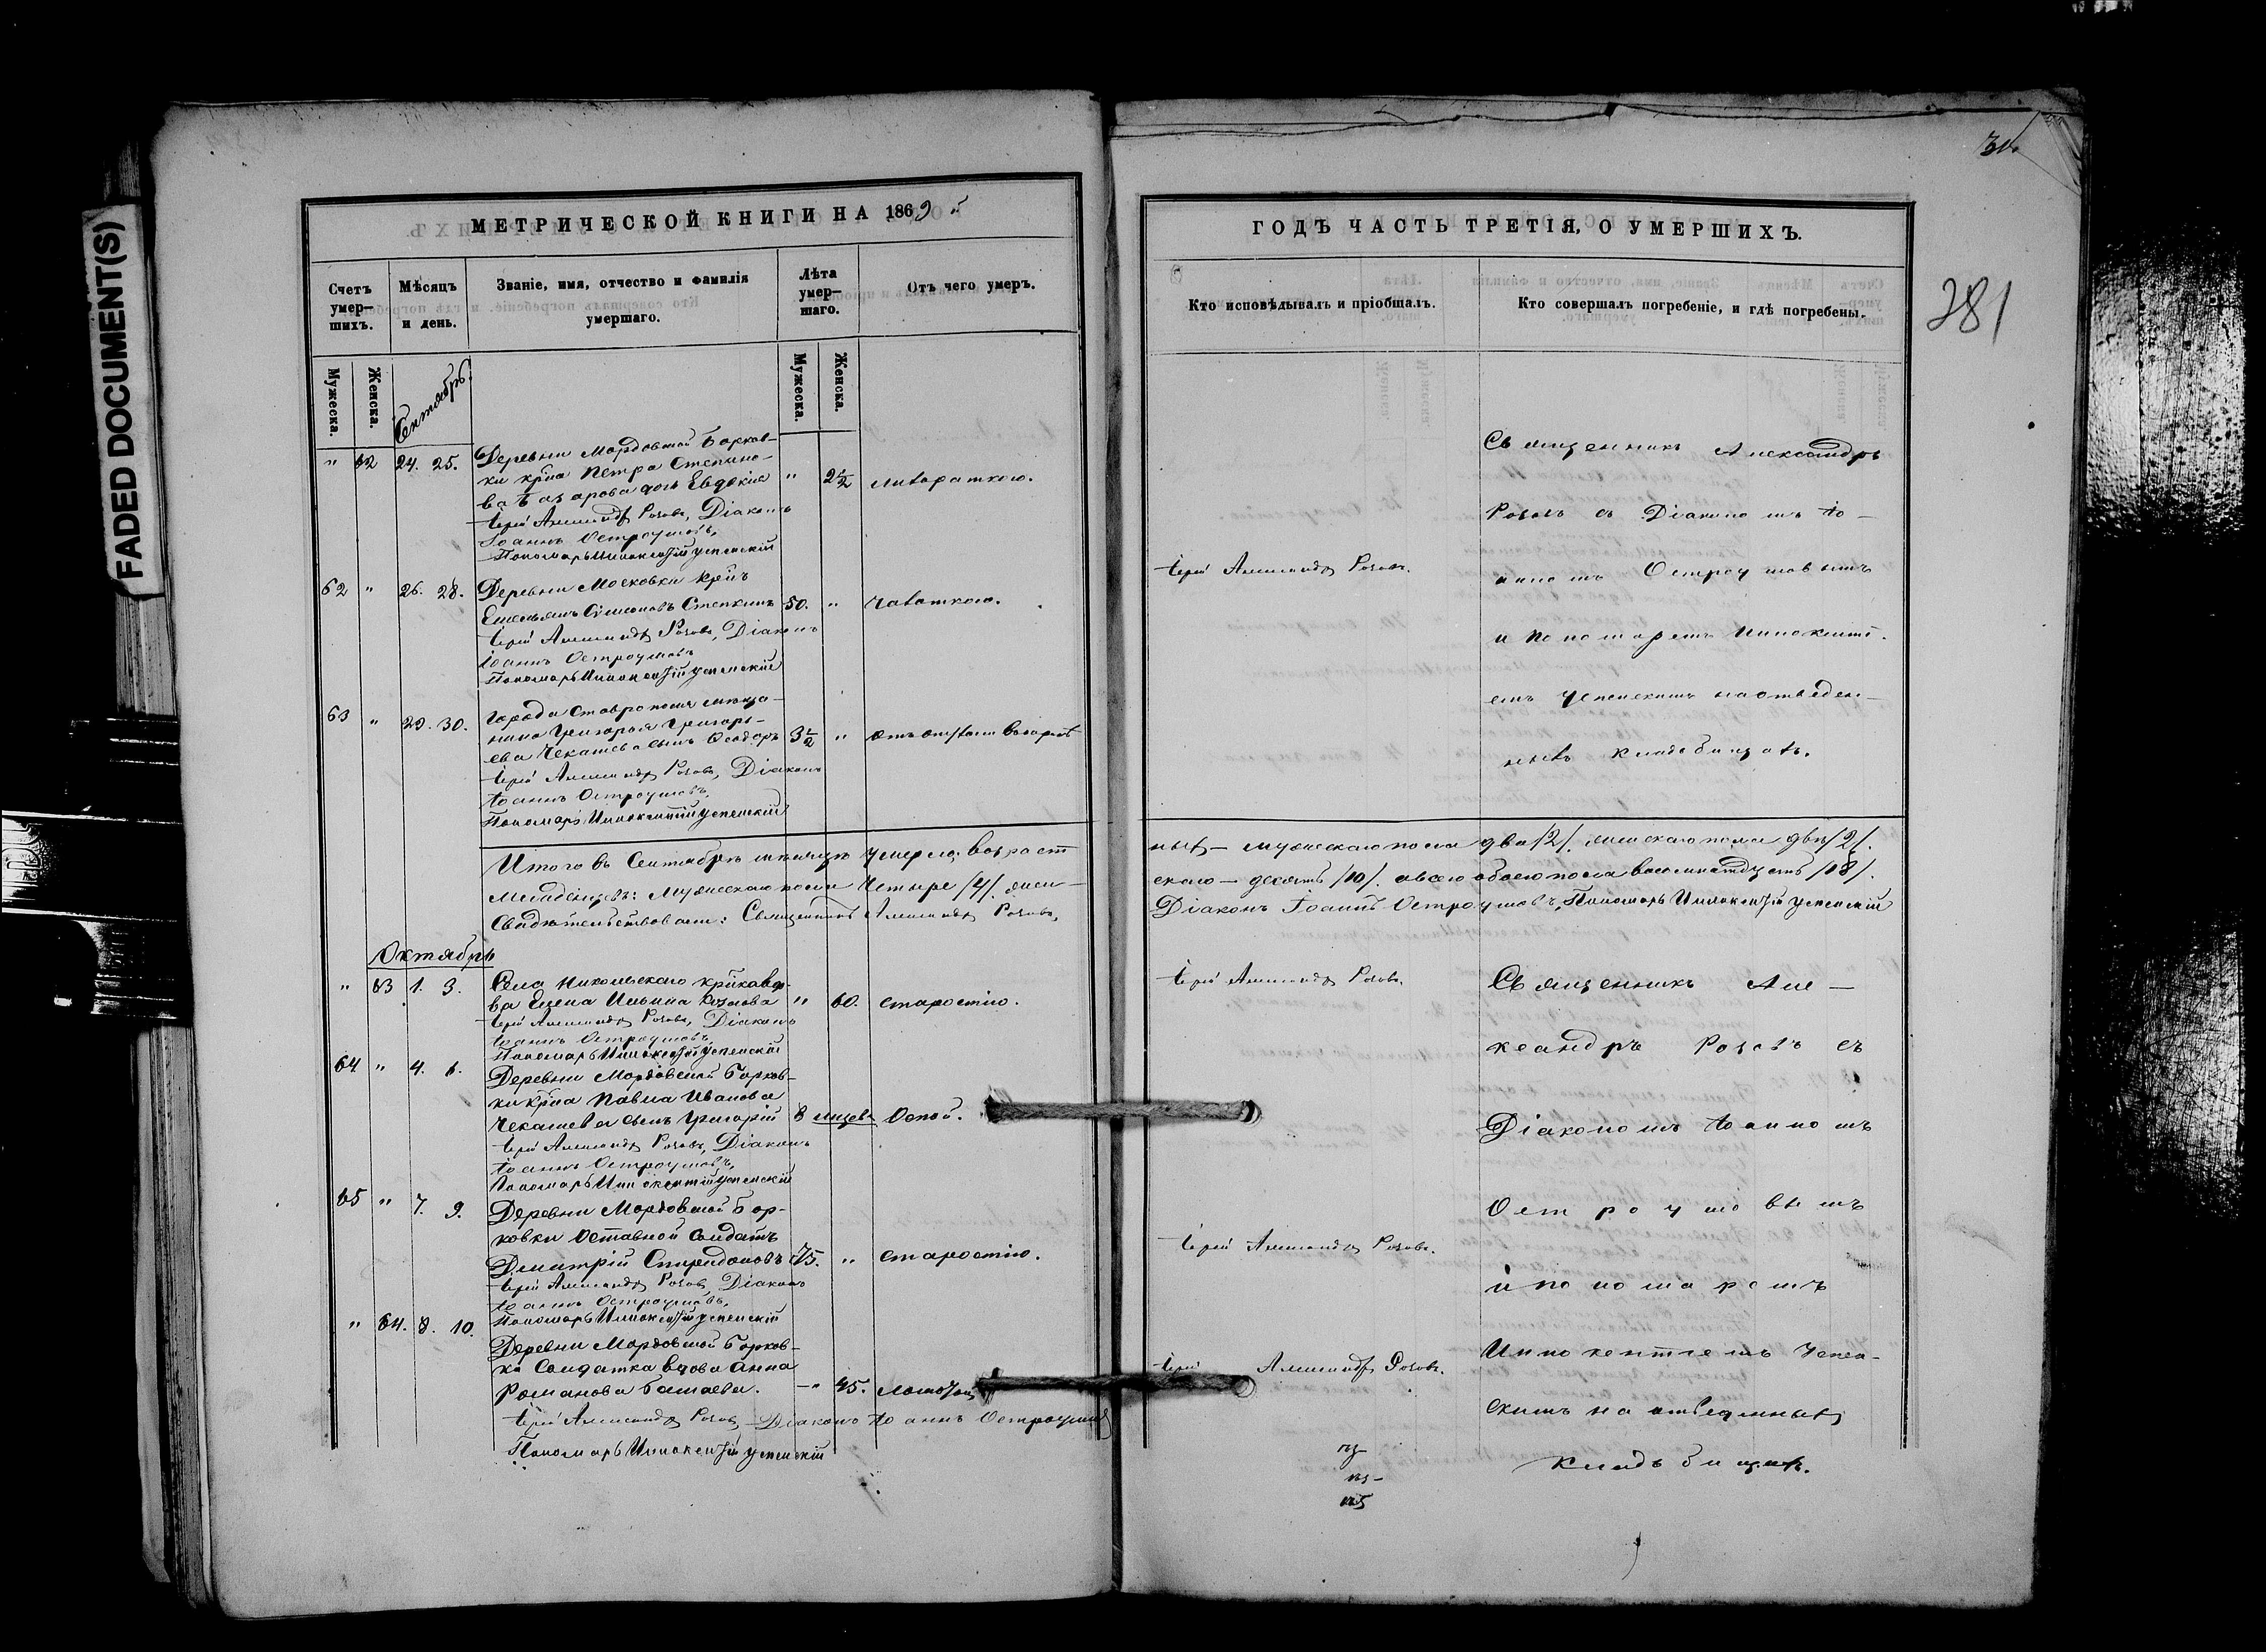 FADED DOCUMENT(S)
МЕТРИЧЕСКОЙ КНИГИ НА 1869 й
Счетъ умер-шихъ.
Мѣсяцъ и день.
Званіе, имя, отчество и фамилія умершаго.
Лѣта умер-шаго.
Отъ чего умеръ.
Мужеска.
Женска.
Сентябрь.
Мужеска.
Женска.
" 62 24. 25. Деревни Мордовской Борков-
ки кр͠на Петра Степано-
ва Базарова дочь Евдокія " 2½
Іерей Александръ Розовъ, Діаконъ
Іоаннъ Остроумовъ,
Пономарь Иннокентій Успенскій
62 " 26. 28. Деревни Московки кр͠нъ
Емельянъ Симоновъ Степкинъ 50. " чахоткою.
Іерей Александръ Розовъ, Діаконъ
Іоаннъ Остроумовъ
Пономарь Иннокентій Успенскій
63 " 29. 30. Города Ставрополя мѣща-
нина Григорья Григорь-
ева Чекашева сынъ Ѳеодоръ 3½ "
Іерей Александръ Розовъ, Діаконъ
Іоаннъ Остроумовъ.
Пономарь Иннокентій Успенскій
Итого въ Сентябрѣ мѣсяцѣ умерло: возраст
Младенцевъ: Мужескаго пола Четыре /4/. жен-
Свидѣтельствовали: Священникъ Александръ Розовъ,
Октябрь
" 63 1. 3. Села Никольскаго кр͠нка вдо-
ва Елена Ильина Козлова " 60. старостію.
Іерей Александръ Розовъ, Діаконъ
Іоаннъ Остроумовъ,
Пономарь Иннокентій Успенскій
64 " 4. 6. Деревни Мордовской Борков-
ки кр͠на Павла Иванова
Чекашева сынъ Григорій 8 мцевъ Оспой.
Іерей Александръ Розовъ, Діаконъ
Іоаннъ Остроумовъ,
Пономарь Иннокентій Успенскій
65 " 7. 9. Деревни Мордовской Бор-
ковки Отставной Солдатъ
Димитрій Спиридоновъ 75. " старостію.
Іерей Александръ Розовъ, Діаконъ
Іоаннъ Остроумовъ,
Пономарь Иннокентій Успенскій
" 64. 8. 10. Деревни Мордовской Борков-
ки Солдатка вдова Анна
Романова -" 45.
Іерей Александръ Розовъ, Діаконъ Іоаннъ Остроумовъ
Пономарь Иннокентій Успенскій
ГОДЪ ЧАСТЬ ТРЕТІЯ, О УМЕРШИХЪ.
381
Кто исповѣдывалъ и пріобщалъ.
Кто совершалъ погребеніе, и гдѣ погребены.
Священникъ Александръ
Розовъ съ Діакономъ Іо-
Іерей Александръ Розовъ.
анномъ Остроумовымъ
и Пономаремъ Иннокенті-
емъ Успенскимъ на отведен-
ныхъ кладбищахъ.
ныхъ - мужескаго пола два /2/. женскаго пола двѣ /2/.
скаго - десять /10/. а всего обоего пола восемнадцать /18/.
Діаконъ Іоаннъ Остроумовъ, Пономарь Иннокентій Успенскій
Іерей Александръ Розовъ.
Священникъ Але-
ксандръ Розовъ съ
Діакономъ Іоанномъ
Остроумовымъ
Іерей Александръ Розовъ.
и пономаремъ
Иннокентіемъ Успен-
Іерей Александръ Розовъ.
скимъ на отведенныхъ
кладбищахъ.